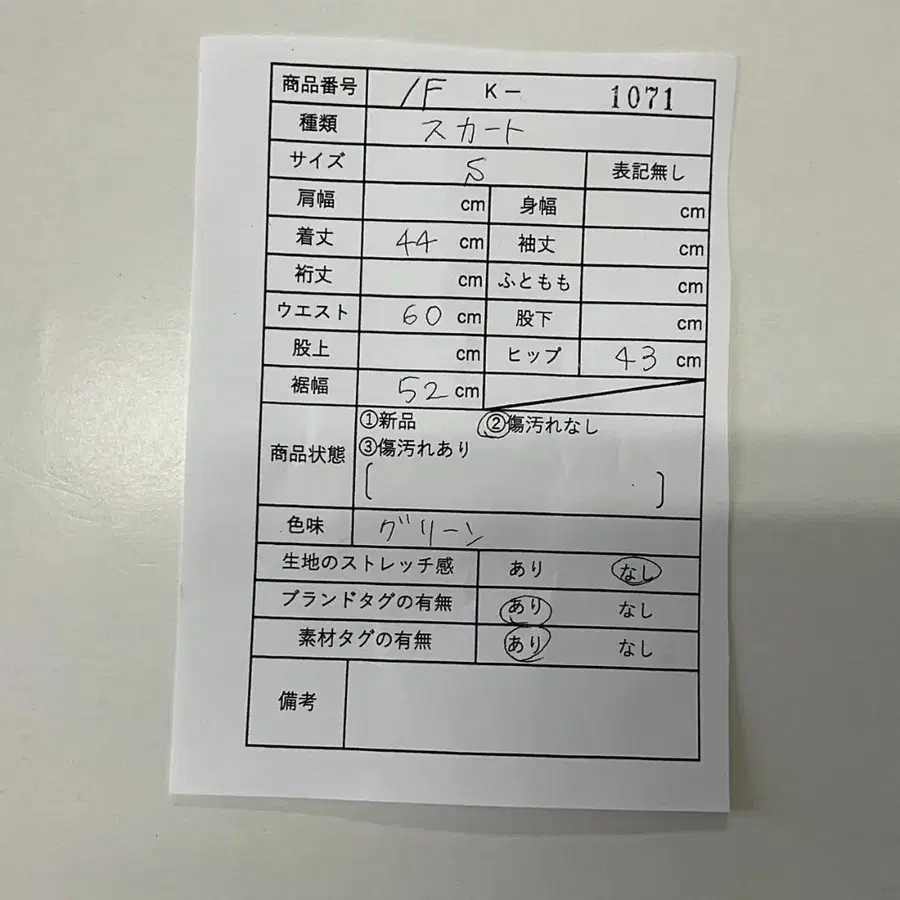 商品番号 1F K- 1071
種類 スカート
サイズ S 表記無し
肩幅 cm 身幅 cm
着丈 44 cm 袖丈 cm
裄丈 cm ふともも cm
ウエスト 60 cm 股下 cm
股上 cm ヒップ 43 cm
裾幅 52 cm
商品状態 ①新品 ②傷汚れなし
③傷汚れあり
[ ]
色味 グリーン
生地のストレッチ感 あり なし
ブランドタグの有無 あり なし
素材タグの有無 あり なし
備考